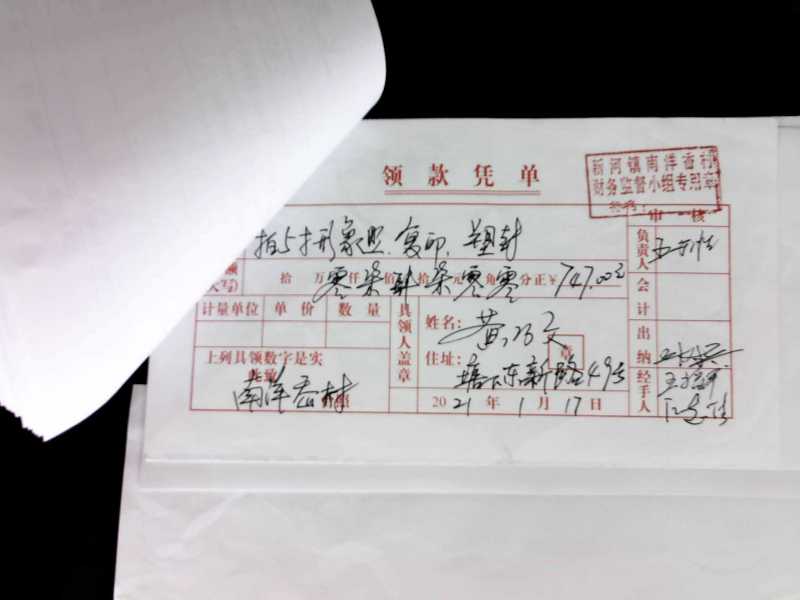 领款凭单
新河镇南洋岙村
财务监督小组专用章
审核
拍5寸形象照.复印.塑封
负责人
额 拾 万零仟柒佰肆拾柒元零角零分正¥747.00元
大写)
会计
计量单位 单价 数量
具领人盖章
姓名:
章
住址: 塘下东新路49号
出纳
上列具领数字是实
此致
南洋岙村
2021年1月17日
经手人